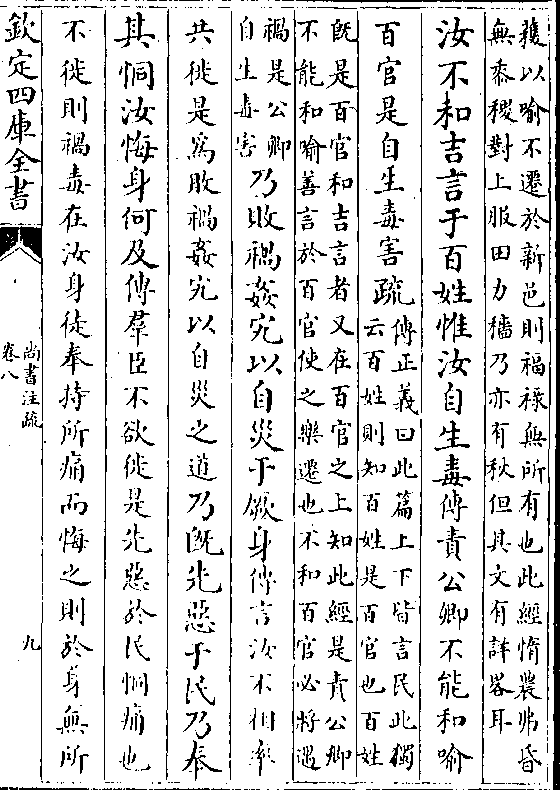 穫以喻不遷於新邑則福祿無所有也此經惰農弗昏
無黍稷對上服田力穡乃亦有秋但其文有詳畧耳
汝不和吉言于百姓惟汝自生毒傳責公卿不能和喻
百官是自生毒害疏
傳正義曰此篇上下皆言民此獨
云百姓則知百姓是百官也百姓
既是百官和吉言者又在百官之上知此經是責公卿
不能和喻善言於百官使之樂遷也不和百官必將遇
禍是公卿
自生毒害
乃敗禍姦宄以自災于厥身傳言汝不相率
共徙是為敗禍姦宄以自災之道乃既先惡于民乃奉
其恫汝悔身何及傳羣臣不欲徙是先惡於民恫痛也
不徙則禍毒在汝身徒奉持所痛而悔之則於身無所
欽定四庫全書
尚書注疏
卷八
九